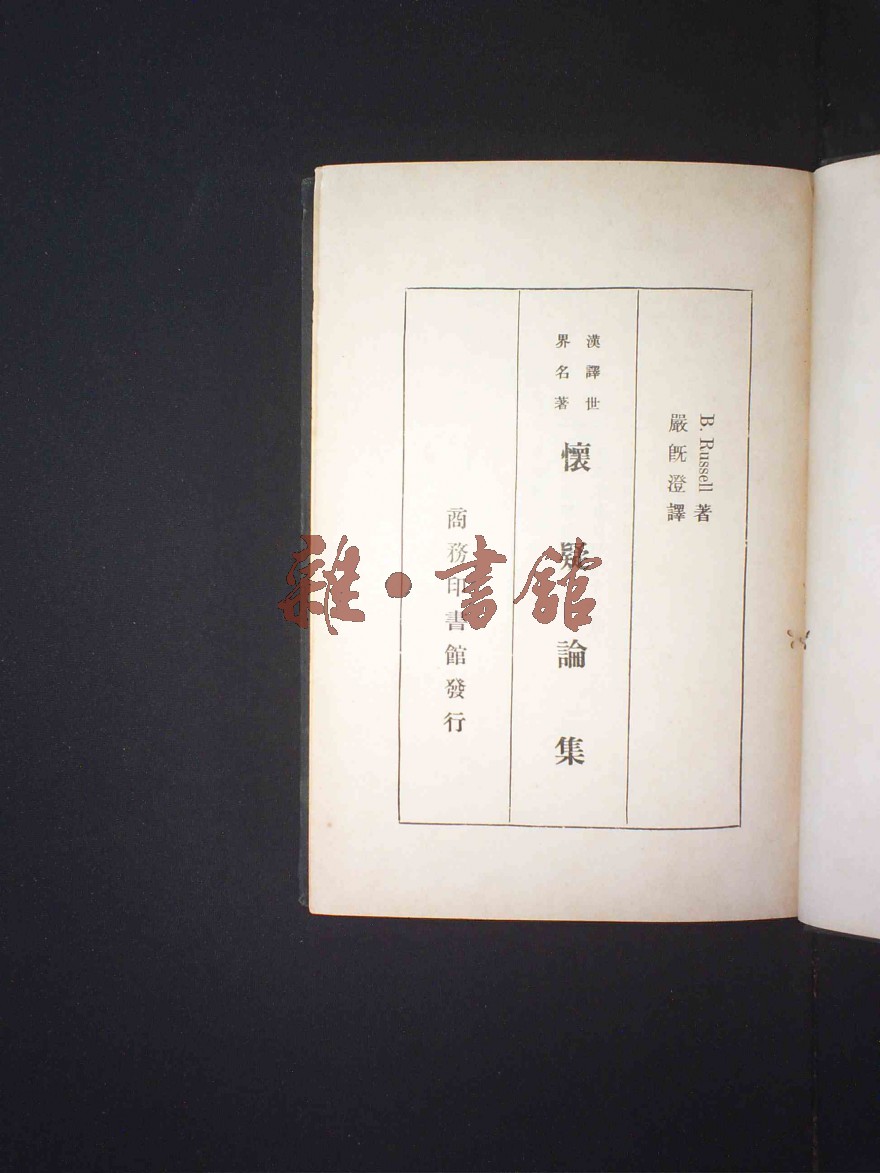 B. Russell 著
嚴既澄譯
漢譯世
界名著
懷疑論集
商務印書館發行
雜·書館